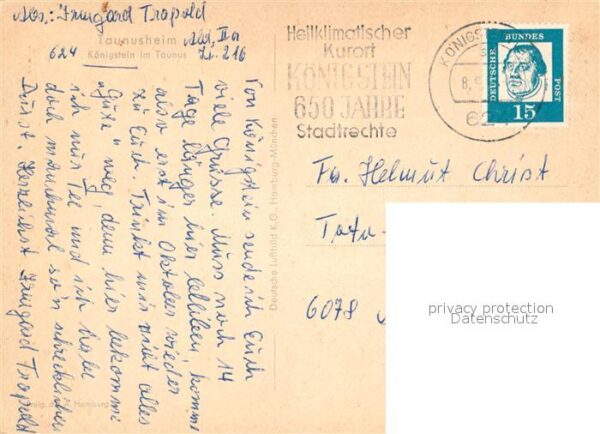 Abs.: Irmgard Tropold
Taunusheim
Königstein im Taunus
624
Abs. II a
Zi. 216
Von Königstein sende ich Euch
viele Grüsse. Muss noch 14
Tage länger hier bleiben, komme
also erst im Oktober wieder
zu Euch. Trinkt mir nicht alles
"Gute" weg, denn hier bekomme
ich nur Tee und ich habe
doch manchmal so'n schrecklichen
Durst. Herzlichst Irmgard Tropold
Deutsche Luftbild K.G., Hamburg-München
Heilklimatischer
Kurort
KÖNIGSTEIN
650 JAHRE
Stadtrechte
KÖNIGS
8.9
624
DEUTSCHE BUNDES POST
15
Fa. Helmut Christ
6078
privacy protection
Datenschutz